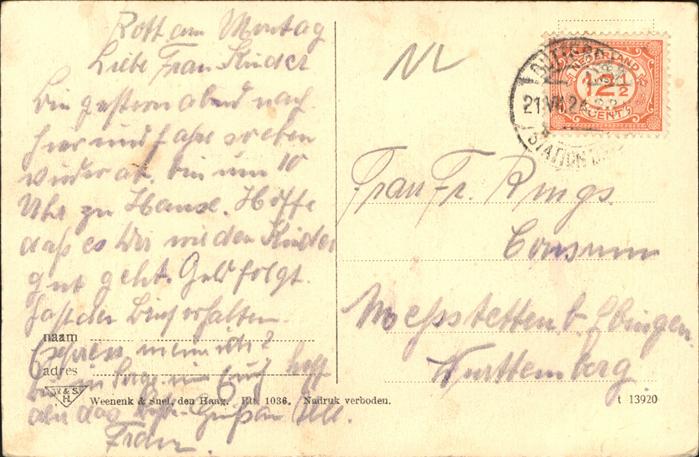 Rott am Montag
Liebe Frau Kinder
bin gestern abend nach
hier und fahre soeben
wieder ab, bin um 10
Uhr zu Hause. Hoffe
daß es Dir und den Kinder
gut geht. Geld folgt.
hast den Brief erhalten
naam
adres
Express meinich?
hoff
das Grüße
Franz.
NL
NEDERLAND
12½
CENT
21.VII.24
STATION
Frau Fr. Rings.
Consum
Messstetten b. Ebingen
Württemberg
W. & S. H.
Weenenk & Snel, den Haag. Ett. 1036. Nadruk verboden.
t 13920